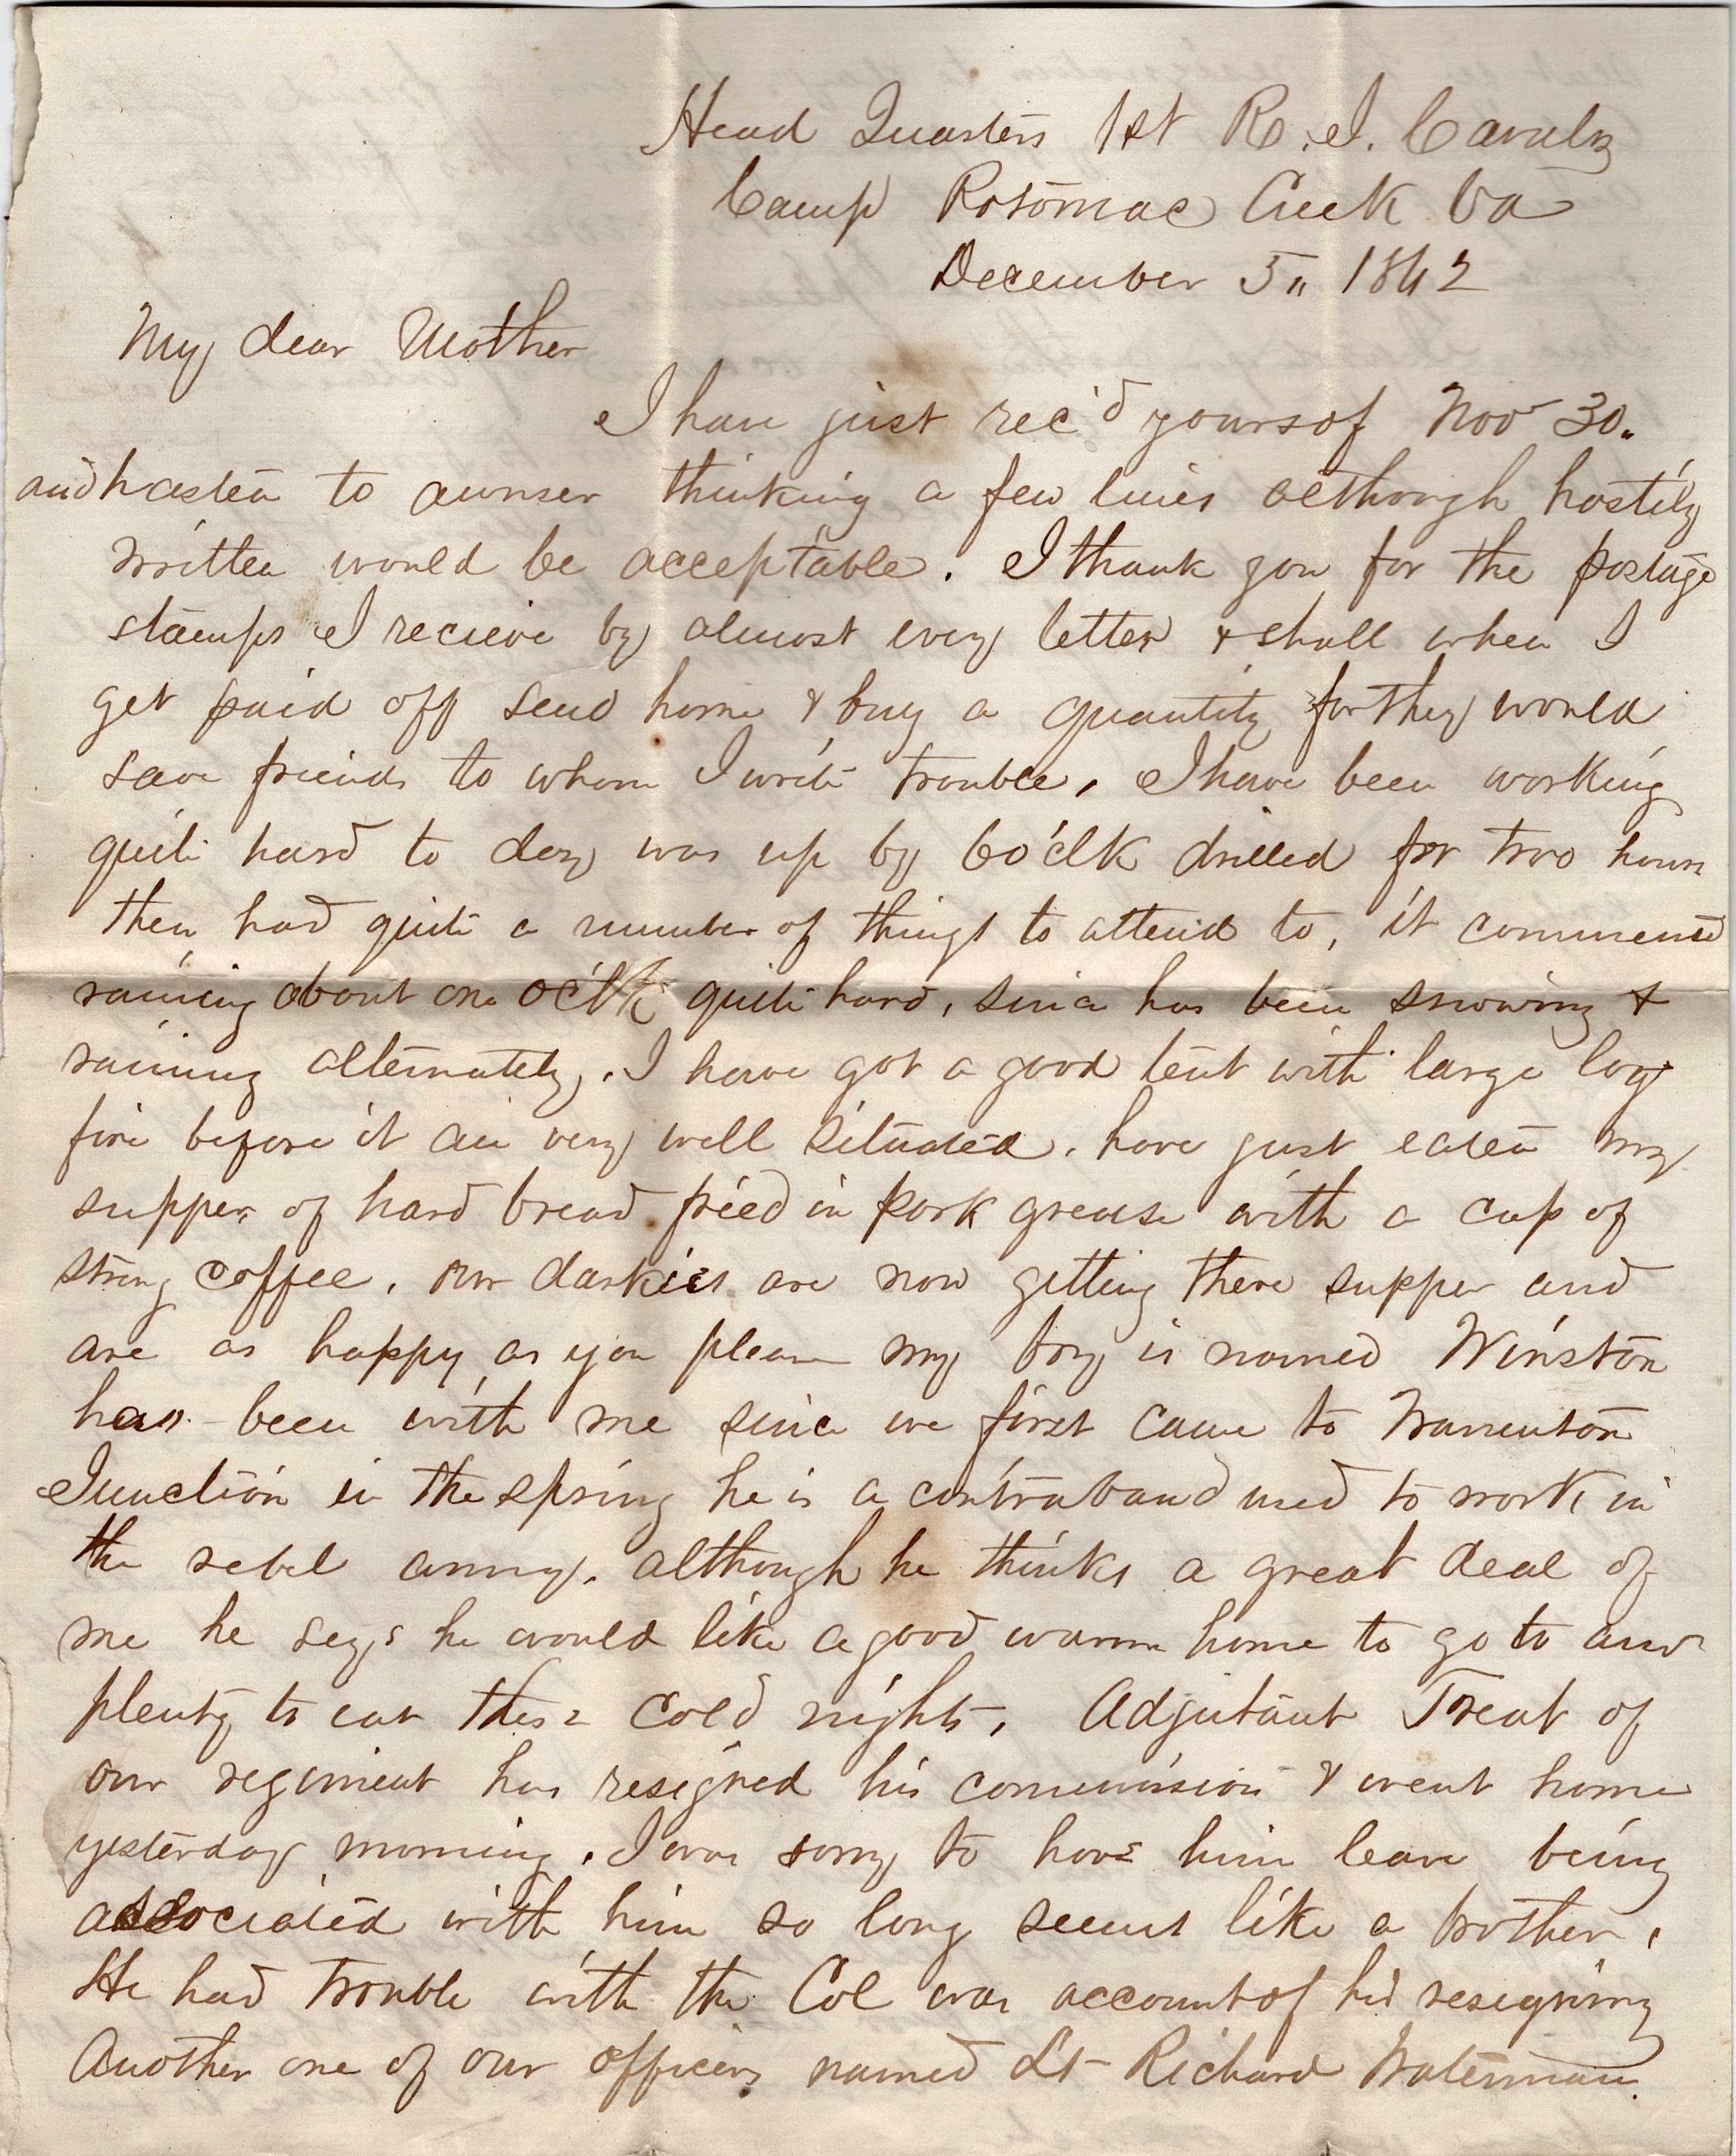 Head Quarters 1st R.I. Cavalry
Camp Potomac Creek Va
December 5" 1862
My dear Mother
I have just rec'd yours of Nov 30.
and hasten to awnser thinking a few lines although hastily
written would be acceptable. I thank you for the postage
stamps I recieve by almost every letter & shall when I
get paid off send home & buy a quantity for they would
save friends to whom I write trouble. I have been working
quite hard to day was up by 6 o'clk drilled for two hours
then had quite a number of things to attend to, it commenced
raining about one oclk quite hard, since has been snowing &
raining alternately. I have got a good tent with large log
fire before it am very well situated. have just eaten my
supper of hard bread fried in pork grease with a cup of
strong coffee. our darkies are now getting there supper and
are as happy as you please my boy is named Winston
has been with me since we first came to Warrenton
Junction in the spring he is a contraband used to work in
the rebel army. although he thinks a great deal of
me he says he would like a good warm home to go to and
plenty to eat these cold nights. Adjutant Treat of
our regiment has resigned his commission & went home
yesterday morning. I was sorry to have him leave being
associated with him so long seems like a brother.
He had trouble with the Col was account of his resigning
Another one of our officers named Lt Richard Waterman.